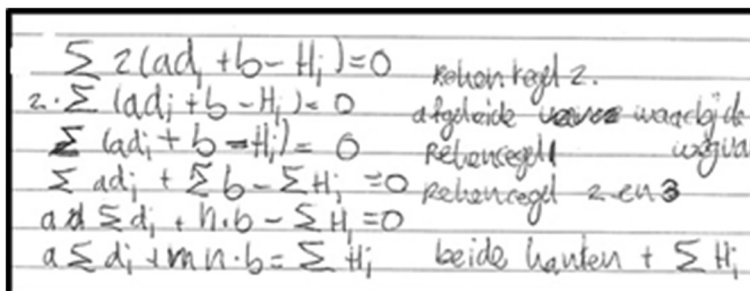 Σ 2(ad_i + b - H_i) = 0 Rekenregel 2.
2 · Σ (ad_i + b - H_i) = 0 afgeleide waarbij de
Σ (ad_i + b - H_i) = 0 Rekenregel 1
Σ ad_i + Σ b - Σ H_i = 0 Rekenregel 2 en 3
a Σ d_i + n·b - Σ H_i = 0
a Σ d_i + n·b = Σ H_i beide kanten + Σ H_i